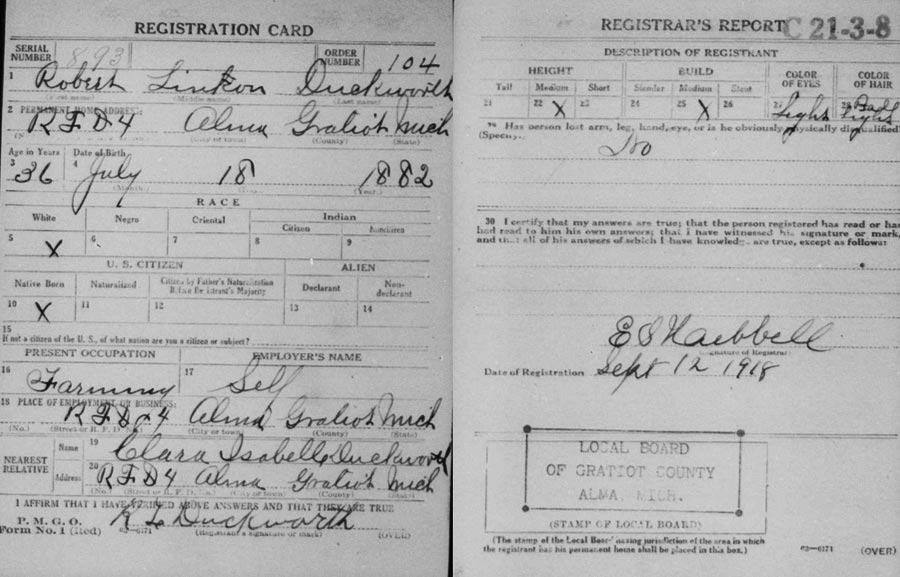 REGISTRATION CARD
SERIAL NUMBER 893
ORDER NUMBER 104
1 Robert Linkon Duckworth
(First name) (Middle name) (Last name)
2 PERMANENT HOME ADDRESS:
R F D 4 Alma Gratiot Mich
(City or town) (County) (State)
Age in Years Date of Birth
3 36 4 July 18 1882
(Month.) (Year.)
RACE
White Negro Oriental Indian
Citizen Noncitizen
5 X 6 7 8 9
U. S. CITIZEN ALIEN
Native Born Naturalized Citizen by Father's Naturalization Before Registrant's Majority Declarant Non-declarant
10 X 11 12 13 14
15
If not a citizen of the U. S., of what nation are you a citizen or subject?
PRESENT OCCUPATION EMPLOYER'S NAME
16 Farming 17 Self
18 PLACE OF EMPLOYMENT OR BUSINESS:
R F D 4 Alma Gratiot Mich
(No.) (Street or R. F. D. No.) (City or town) (County) (State)
NEAREST RELATIVE
Name 19 Clara Isabelle Duckworth
Address 20 R F D 4 Alma Gratiot Mich
(No.) (Street or R. F. D. No.) (City or town) (County) (State)
I AFFIRM THAT I HAVE VERIFIED ABOVE ANSWERS AND THAT THEY ARE TRUE
P. M. G. O.
Form No. 1 (Red) 03—6171 R L Duckworth
(Registrant's signature or mark) (OVER)
REGISTRAR'S REPORT C 21-3-8
DESCRIPTION OF REGISTRANT
HEIGHT BUILD COLOR OF EYES COLOR OF HAIR
Tall Medium Short Slender Medium Stout
21 22 X 23 24 25 X 26 27 Light 28 Bald Light
29 Has person lost arm, leg, hand, eye, or is he obviously physically disqualified?
(Specify.) No
30 I certify that my answers are true; that the person registered has read or has
had read to him his own answers; that I have witnessed his signature or mark,
and that all of his answers of which I have knowledge are true, except as follows:
(Signature of Registrar)
Date of Registration Sept 12 1918
LOCAL BOARD
OF GRATIOT COUNTY
ALMA, MICH.
(STAMP OF LOCAL BOARD)
(The stamp of the Local Board having jurisdiction of the area in which
the registrant has his permanent home shall be placed in this box.)
03—6171 (OVER)